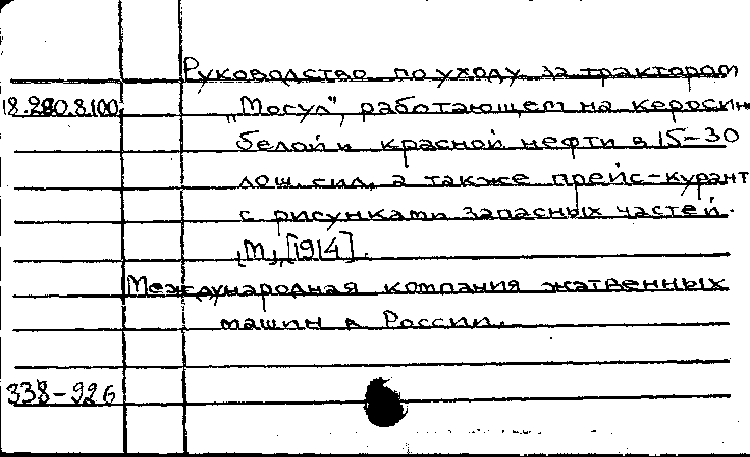 Руководство по уходу за трактором
18.280.8.100. „Могул", работающем на керосин
белой и красной нефти в 15-30
лош. сил, а также прейс-курант
с рисунками запасных частей.
[М], [1914].
Международная компания жатвенных
машин в России.
338-926